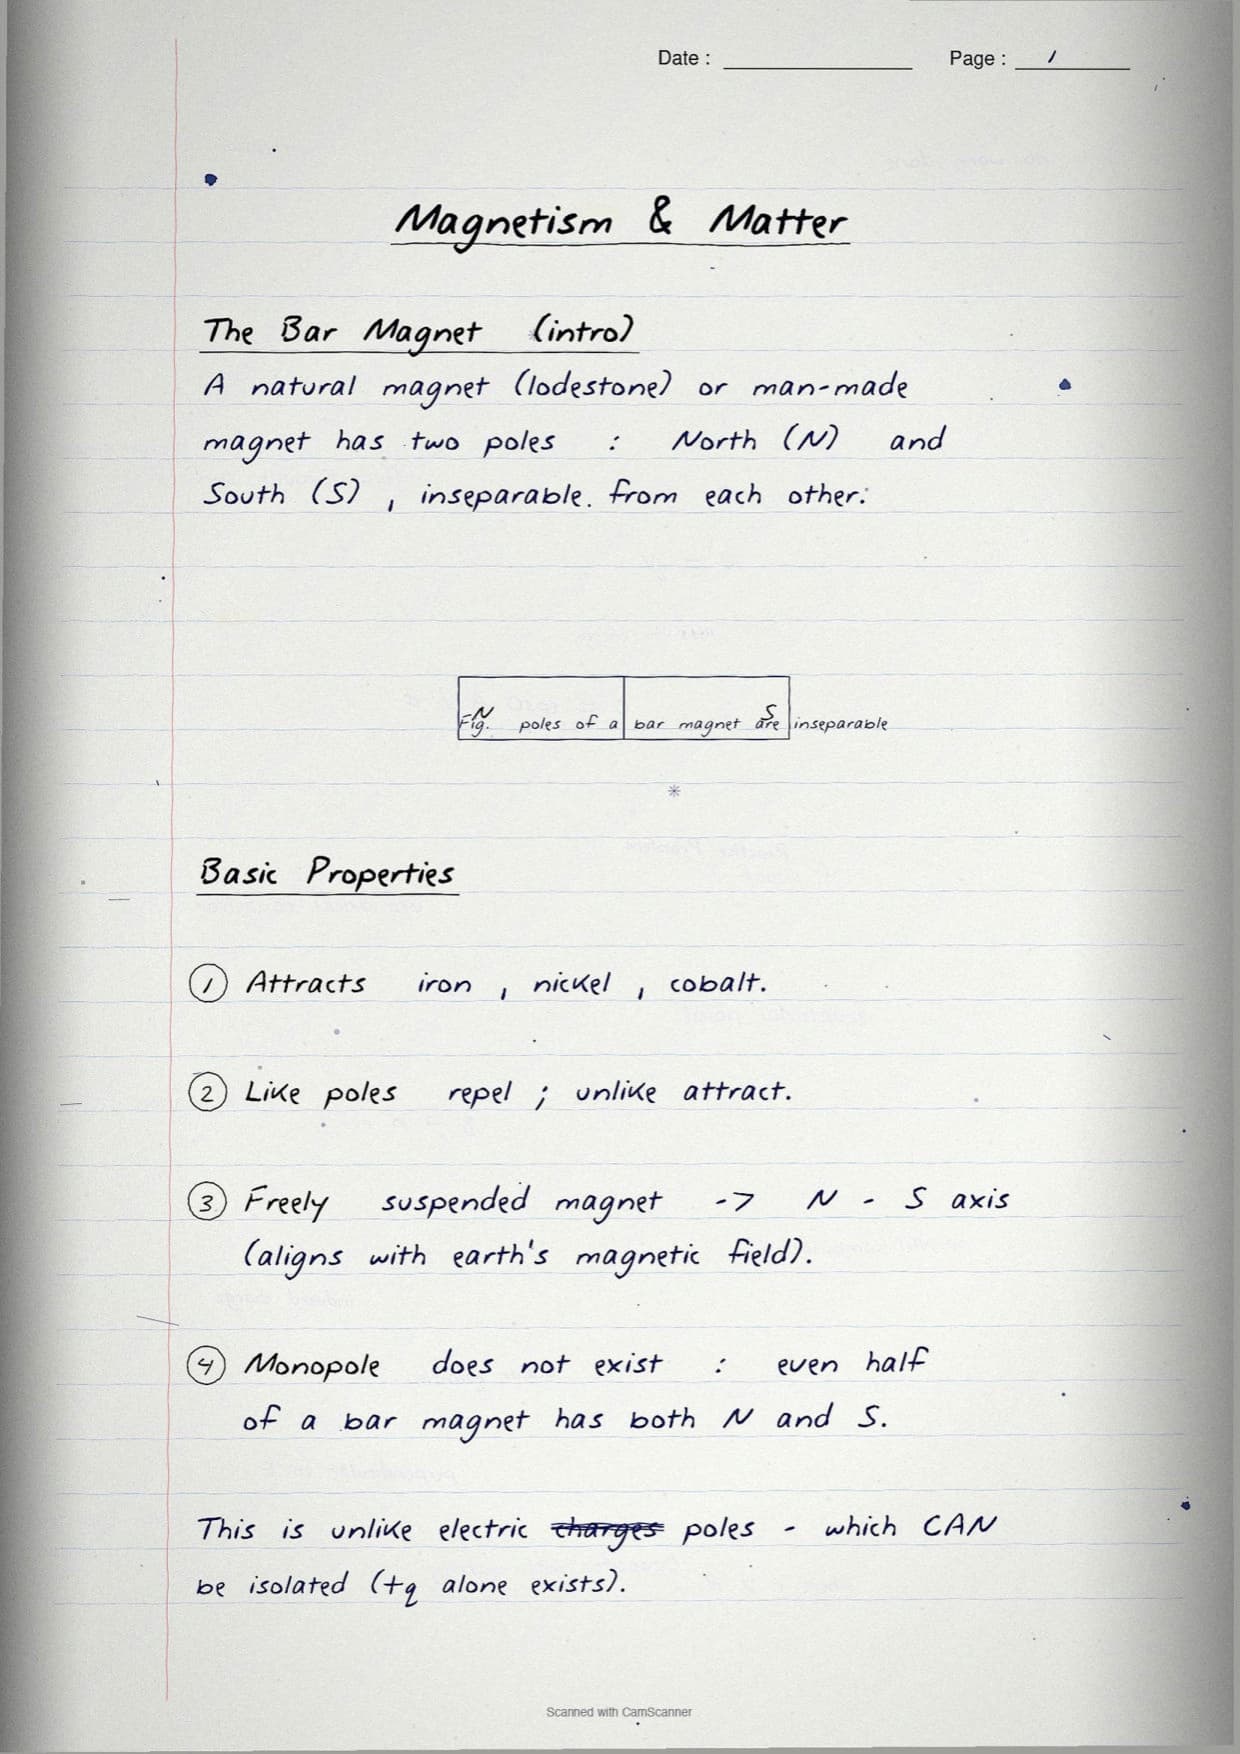 Date : Page : 1
Magnetism & Matter
The Bar Magnet (intro)
A natural magnet (lodestone) or man-made
magnet has two poles : North (N) and
South (S) , inseparable. from each other.
N S
Fig. poles of a bar magnet are inseparable
*
Basic Properties
1 Attracts iron , nickel , cobalt.
2 Like poles repel ; unlike attract.
3 Freely suspended magnet -> N - S axis
(aligns with earth's magnetic field).
4 Monopole does not exist : even half
of a bar magnet has both N and S.
This is unlike electric charges poles - which CAN
be isolated (+q alone exists).
Scanned with CamScanner